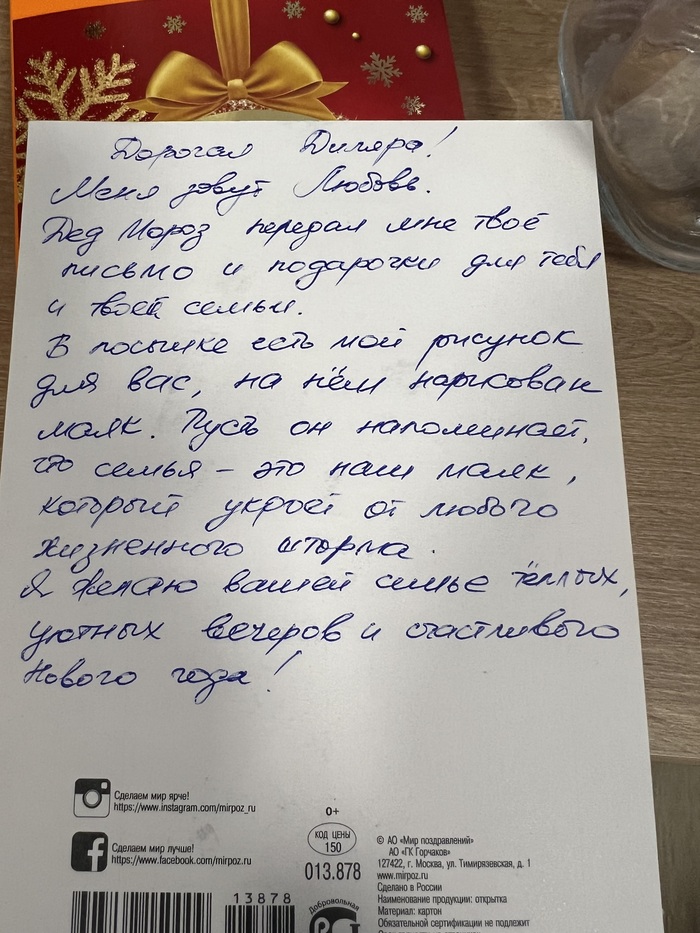 Дорогая Диляра!
Меня зовут Любовь.
Дед Мороз передал мне твоё
письмо и подарочки для тебя
и твоей семьи.
В посылке есть мой рисунок
для вас, на нём нарисован
маяк. Пусть он напоминает,
что семья – это наш маяк,
который укроет от любого
жизненного шторма.
Я желаю вашей семье тёплых,
уютных вечеров и счастливого
Нового года!
Сделаем мир ярче!
https://www.instagram.com/mirpoz_ru
Сделаем мир лучше!
https://www.facebook.com/mirpoz.ru
0+
КОД ЦЕНЫ
150
013.878
© АО «Мир поздравлений»
АО «ГК Горчаков»
127422, г. Москва, ул. Тимирязевская, д. 1
www.mirpoz.ru
Сделано в России
Наименование продукции: открытка
Материал: картон
Обязательной сертификации не подлежит
13878
Добровольная